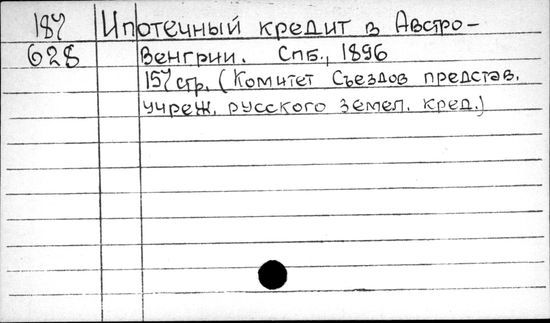 187 Ипотечный кредит в Австро-
628 Венгрии. Спб., 1896
157 стр. (Комитет Съездов представ.
учреж. русского земел. кред.)